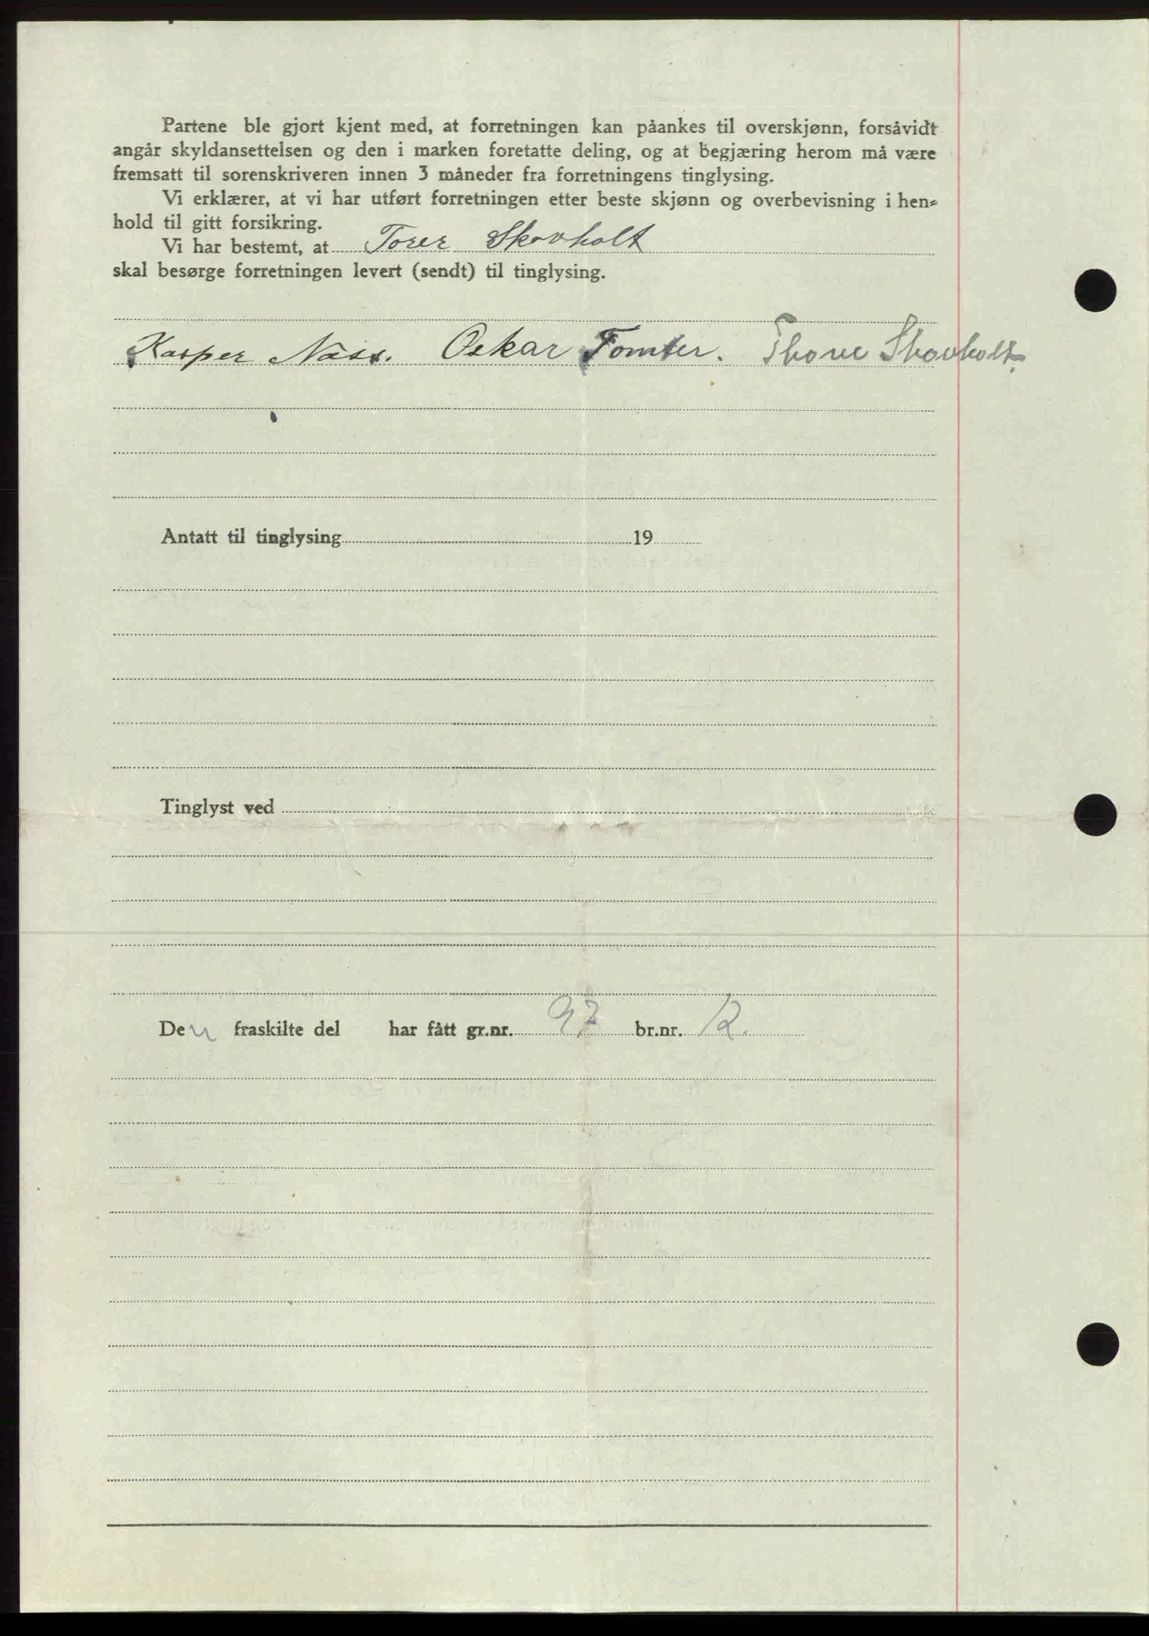 Partene ble gjort kjent med, at forretningen kan påankes til overskjønn, forsåvidt
angår skyldansettelsen og den i marken foretatte deling, og at begjæring herom må være
fremsatt til sorenskriveren innen 3 måneder fra forretningens tinglysing.
Vi erklærer, at vi har utført forretningen etter beste skjønn og overbevisning i hen-
hold til gitt forsikring.
Vi har bestemt, at Torer Skovholt
skal besørge forretningen levert (sendt) til tinglysing.
Kasper Næss. Oskar Fomter. Thore Skovholt.
Antatt til tinglysing 19
Tinglyst ved
Den fraskilte del har fått gr.nr. 97 br.nr. 12.